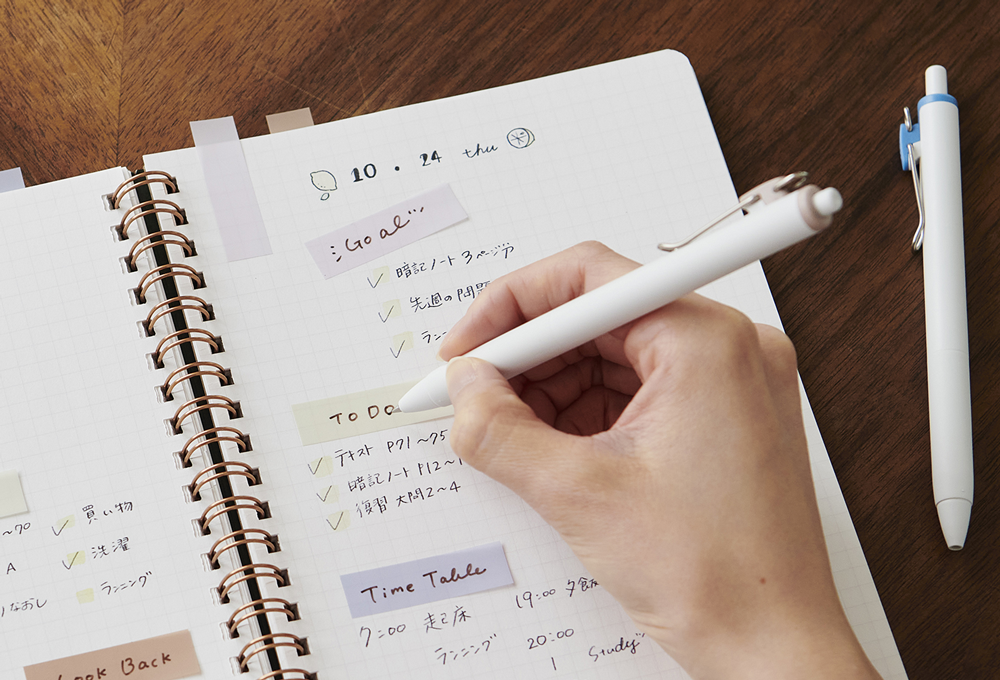 ~70
A
なおし
買い物
洗濯
ランニング
Look Back
10 . 24 thu
Goal
暗記ノート 3ページ分
先週の問題
ラン
TO DO
テキスト P71~75
暗記ノート P12~1
復習 大問2~4
Time Table
7:00 起床
ランニング
19:00 夕飯
20:00
Study